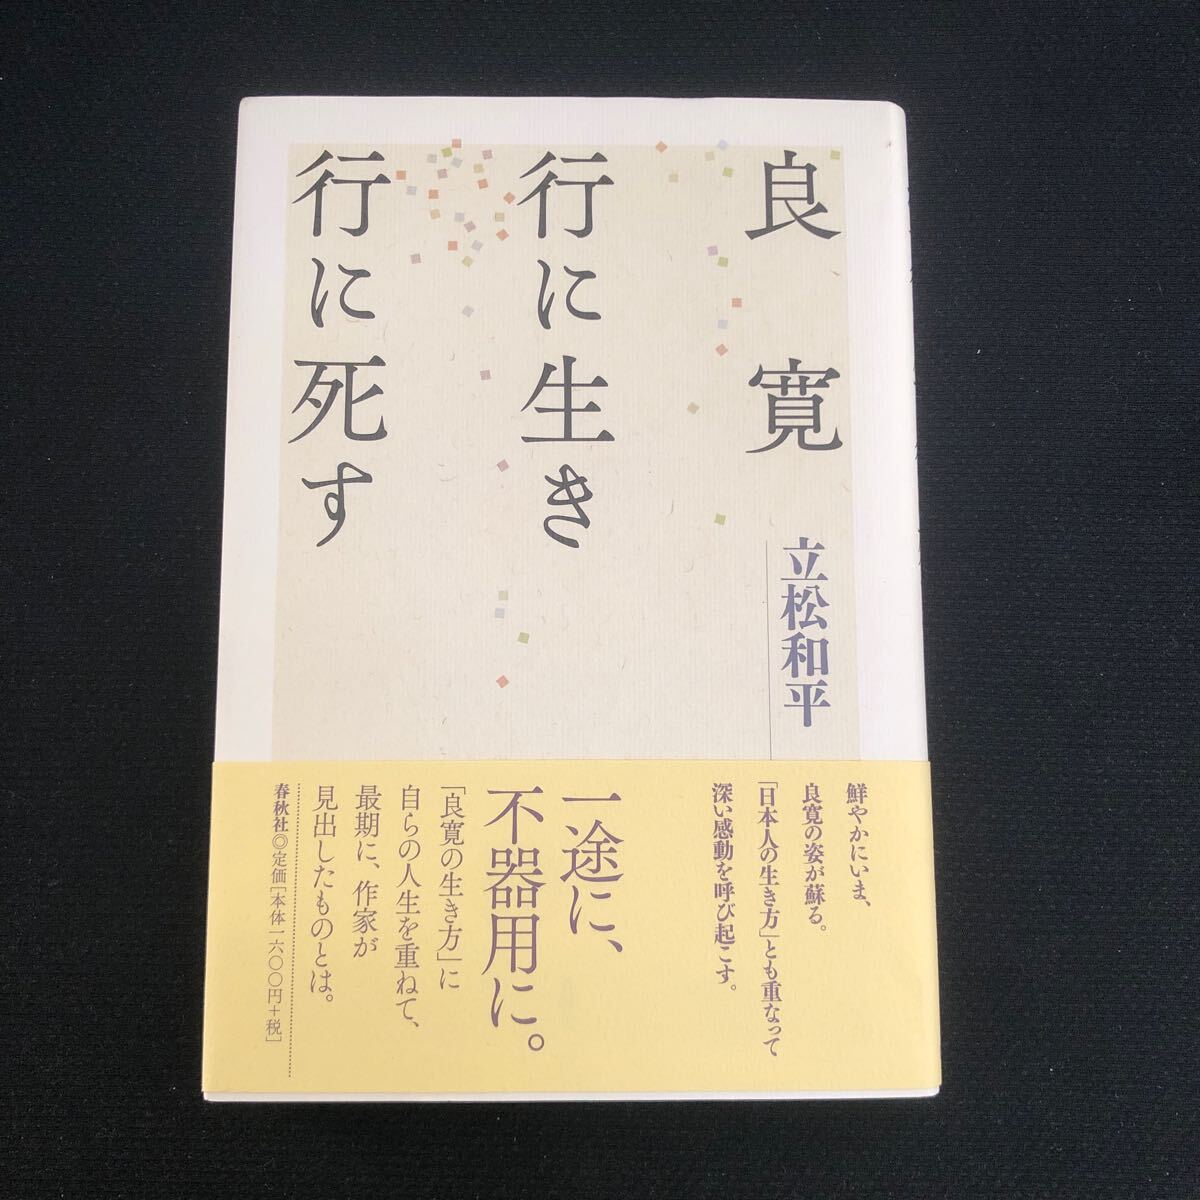 良寛
行に生き
行に死す
立松和平
鮮やかにいま、
良寛の姿が蘇る。
「日本人の生き方」とも重なって
深い感動を呼び起こす。
一途に、
不器用に。
「良寛の生き方」に
自らの人生を重ねて、
最期に、作家が
見出したものとは。
春秋社◎定価[本体一六〇〇円+税]